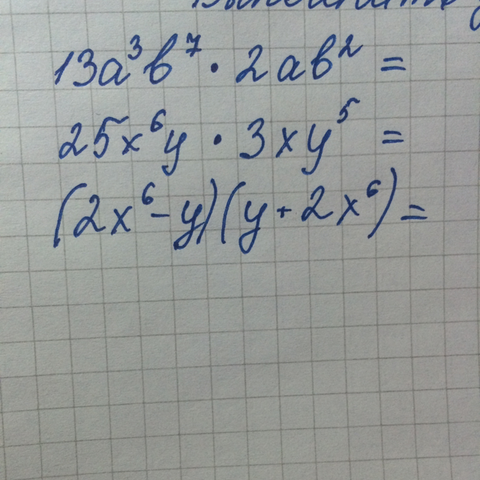 13a³b⁷ · 2ab² =
25x⁶y · 3xy⁵ =
(2x⁶ - y)(y + 2x⁶) =